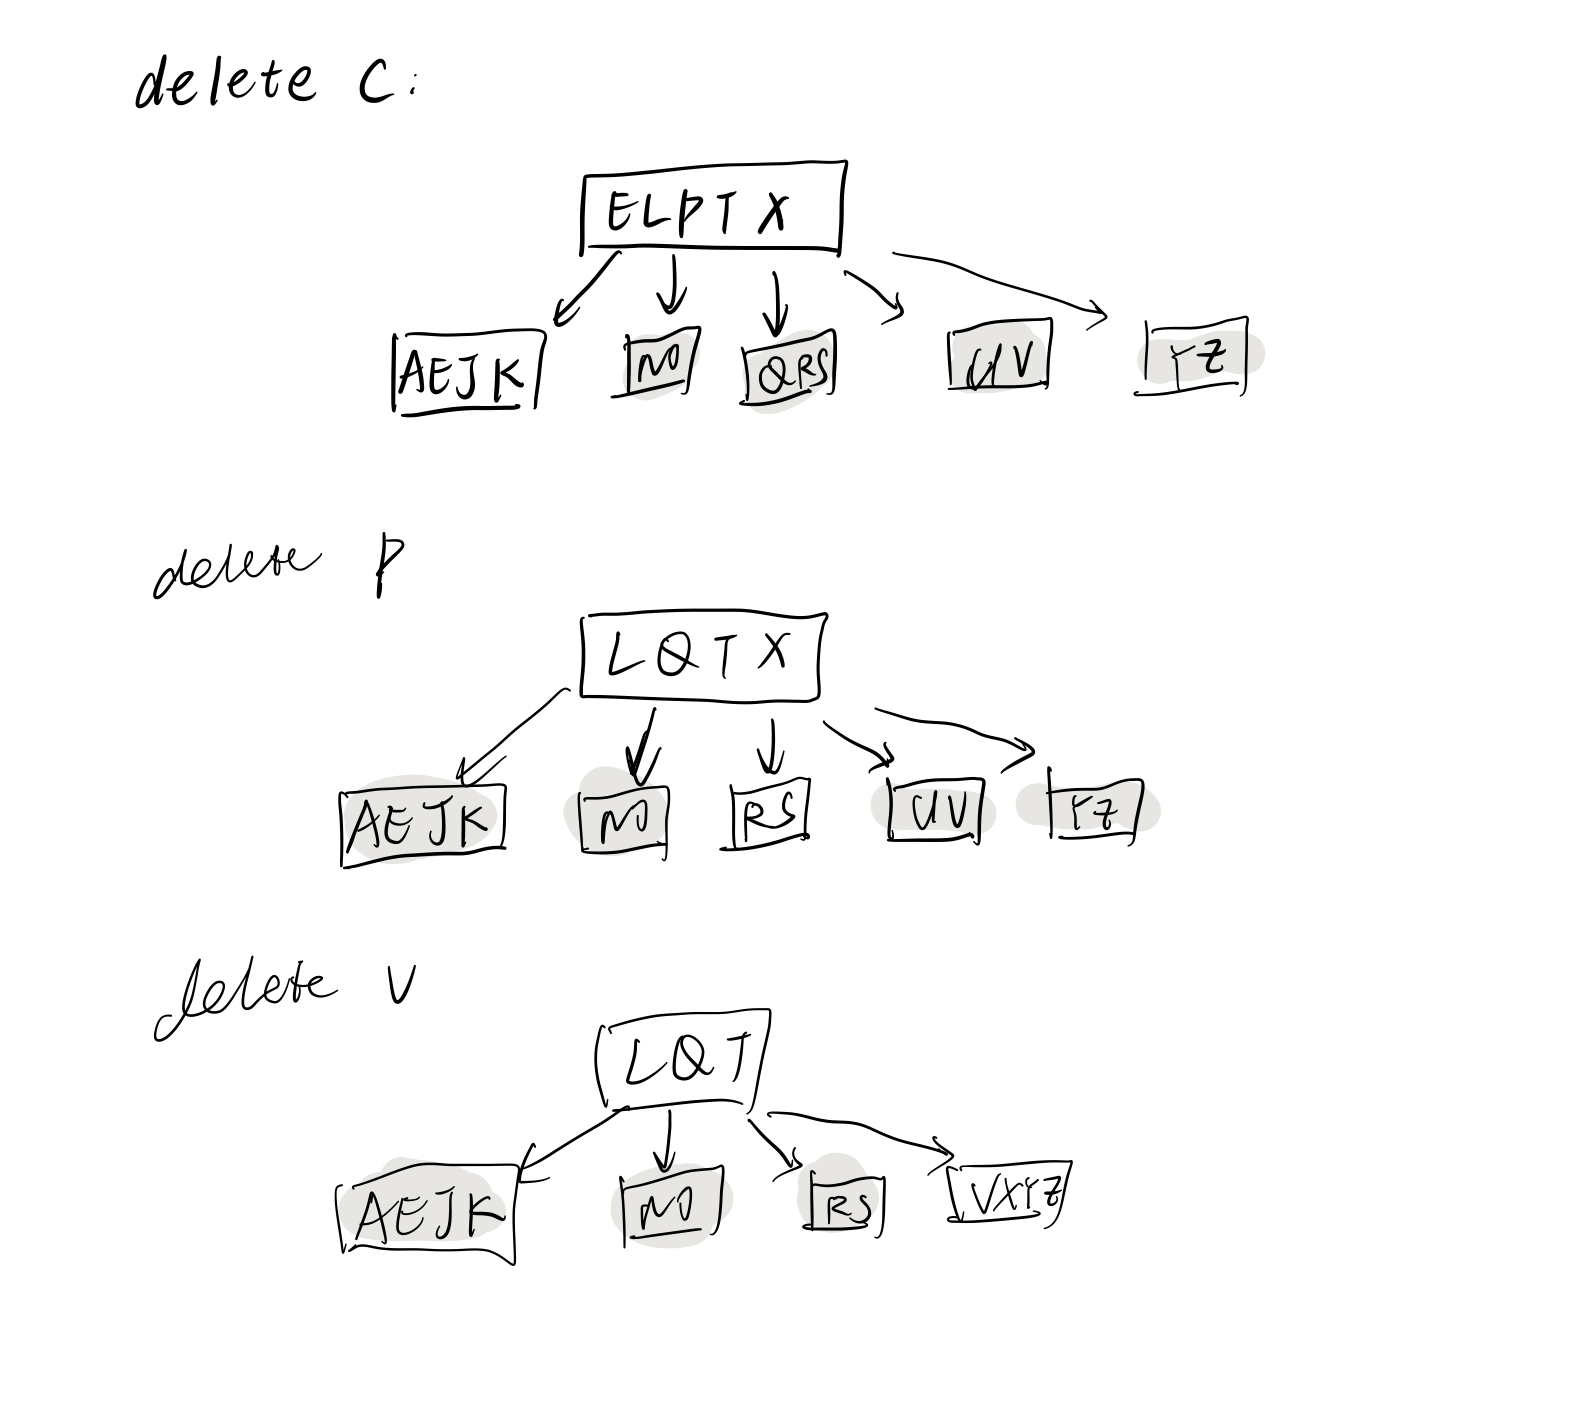 delete C:
ELPTX
AEJK NO QRS UV YZ
delete P
LQTX
AEJK NO RS UV YZ
delete V
LQT
AEJK NO RS VXYZ